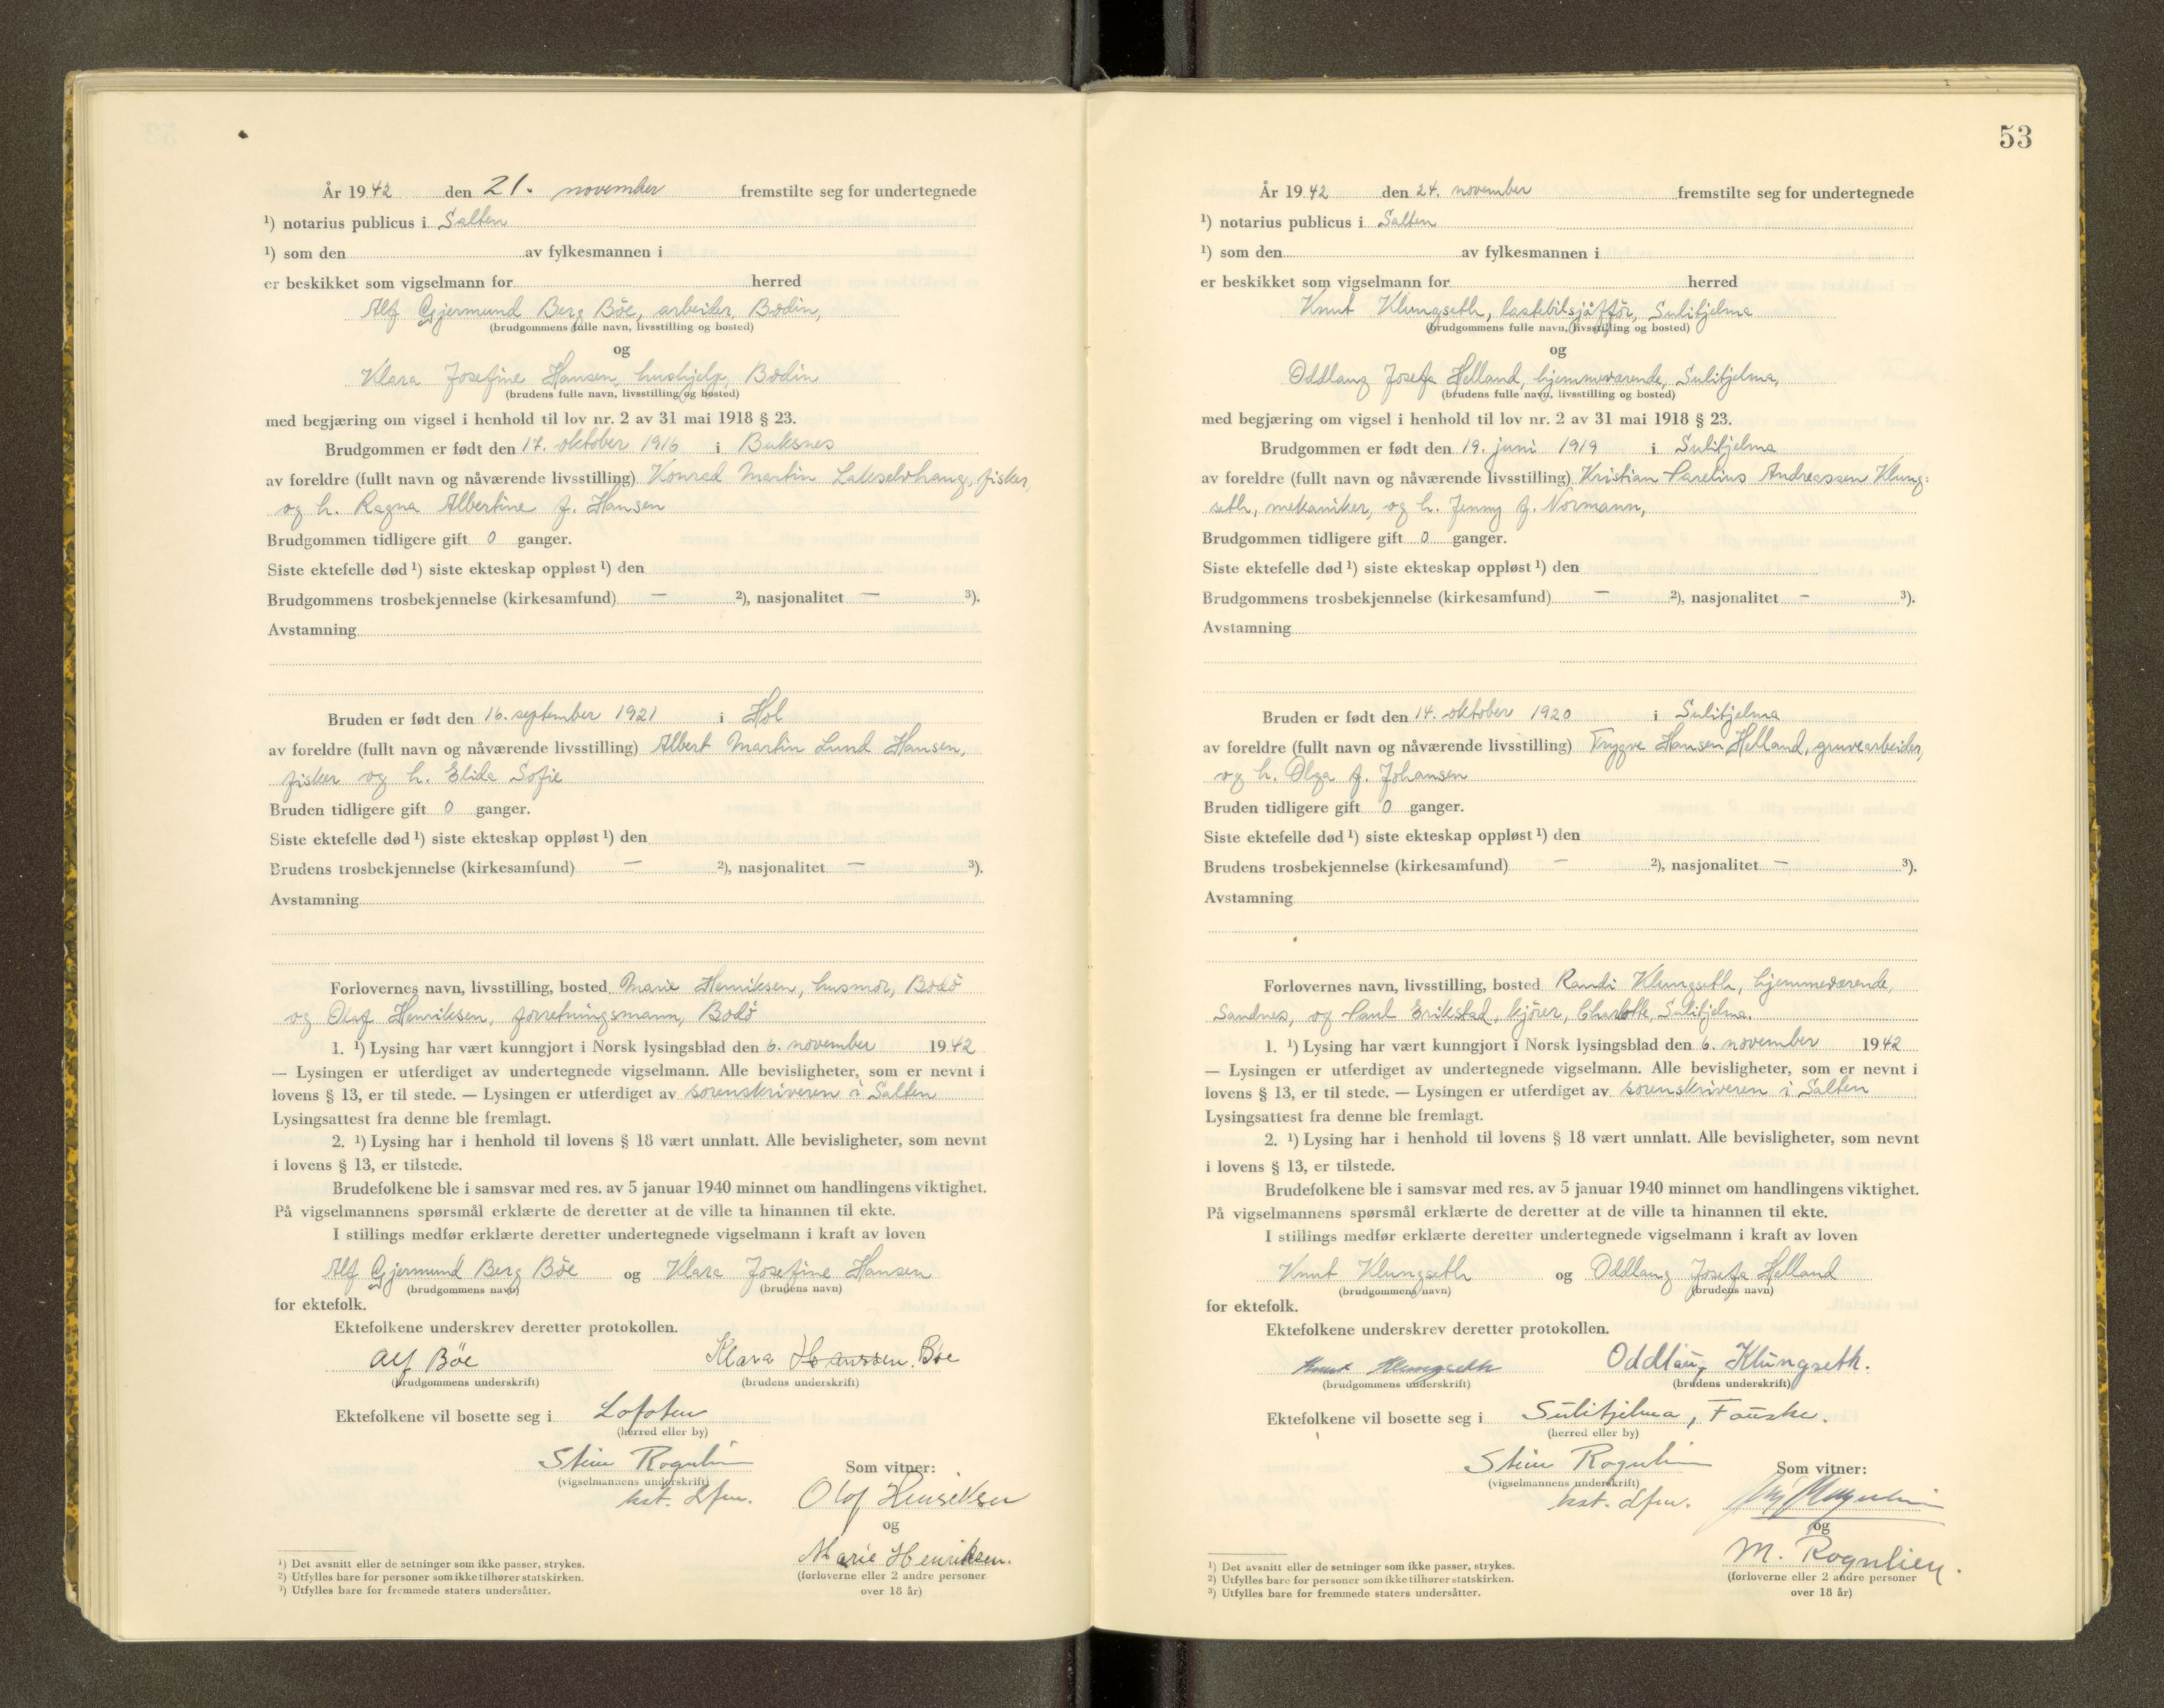 År 1942 den 21. november fremstilte seg for undertegnede
¹) notarius publicus i Salten
¹) som den av fylkesmannen i
er beskikket som vigselmann for herred
Alf Gjermund Berg Böe, arbeider, Bodin,
(brudgommens fulle navn, livsstilling og bosted)
og
Klara Josefine Hansen, hushjelp, Bodin
(brudens fulle navn, livsstilling og bosted)
med begjæring om vigsel i henhold til lov nr. 2 av 31 mai 1918 § 23.
Brudgommen er født den 17. oktober 1916 i Buksnes
av foreldre (fullt navn og nåværende livsstilling) Konrad Martin Lakselvhaug, fisker,
og h. Ragna Albertine f. Hansen
Brudgommen tidligere gift 0 ganger.
Siste ektefelle død ¹) siste ekteskap oppløst ¹) den
Brudgommens trosbekjennelse (kirkesamfund) — ²), nasjonalitet — ³).
Avstamning
Bruden er født den 16. september 1921 i Hol
av foreldre (fullt navn og nåværende livsstilling) Albert Martin Lund Hansen,
fisker og h. Elida Sofie
Bruden tidligere gift 0 ganger.
Siste ektefelle død ¹) siste ekteskap oppløst ¹) den
Brudens trosbekjennelse (kirkesamfund) — ²), nasjonalitet — ³).
Avstamning
Forlovernes navn, livsstilling, bosted Marie Henriksen, husmor, Bodö
og Olaf Henriksen, forretningsmann, Bodö
1. ¹) Lysing har vært kunngjort i Norsk lysingsblad den 6. november 1942
— Lysingen er utferdiget av undertegnede vigselmann. Alle bevisligheter, som er nevnt i
lovens § 13, er til stede. — Lysingen er utferdiget av sorenskriveren i Salten
Lysingsattest fra denne ble fremlagt.
2. ¹) Lysing har i henhold til lovens § 18 vært unnlatt. Alle bevisligheter, som nevnt
i lovens § 13, er tilstede.
Brudefolkene ble i samsvar med res. av 5 januar 1940 minnet om handlingens viktighet.
På vigselmannens spørsmål erklærte de deretter at de ville ta hinannen til ekte.
I stillings medfør erklærte deretter undertegnede vigselmann i kraft av loven
Alf Gjermund Berg Böe og Klara Josefine Hansen
(brudgommens navn) (brudens navn)
for ektefolk.
Ektefolkene underskrev deretter protokollen.
Alf Böe Klara Hanssen. Böe
(brudgommens underskrift) (brudens underskrift)
Ektefolkene vil bosette seg i Lofoten
(herred eller by)
Stein Rognlien Som vitner:
(vigselmannens underskrift)
kst. dfm. Olaf Henriksen
og
Marie Henriksen.
(forloverne eller 2 andre personer
over 18 år)
¹) Det avsnitt eller de setninger som ikke passer, strykes.
²) Utfylles bare for personer som ikke tilhører statskirken.
³) Utfylles bare for fremmede staters undersåtter.
53
År 1942 den 24. november fremstilte seg for undertegnede
¹) notarius publicus i Salten
¹) som den av fylkesmannen i
er beskikket som vigselmann for herred
Knut Klungseth, lastebilsjåffør, Sulitjelma
(brudgommens fulle navn, livsstilling og bosted)
og
Oddlaug Josefa Helland, hjemmeværende, Sulitjelma,
(brudens fulle navn, livsstilling og bosted)
med begjæring om vigsel i henhold til lov nr. 2 av 31 mai 1918 § 23.
Brudgommen er født den 19. juni 1919 i Sulitjelma
av foreldre (fullt navn og nåværende livsstilling) Kristian Parelius Andreassen Klung-
seth, mekaniker, og h. Jenny f. Normann,
Brudgommen tidligere gift 0 ganger.
Siste ektefelle død ¹) siste ekteskap oppløst ¹) den
Brudgommens trosbekjennelse (kirkesamfund) — ²), nasjonalitet — ³).
Avstamning
Bruden er født den 14. oktober 1920 i Sulitjelma
av foreldre (fullt navn og nåværende livsstilling) Trygve Hansen Helland, gruvearbeider,
og h. Olga f. Johansen
Bruden tidligere gift 0 ganger.
Siste ektefelle død ¹) siste ekteskap oppløst ¹) den
Brudens trosbekjennelse (kirkesamfund) — ²), nasjonalitet — ³).
Avstamning
Forlovernes navn, livsstilling, bosted Randi Klungseth, hjemmeværende,
Sandnes, og Paul Erikstad, kjører, Charlotte, Sulitjelma.
1. ¹) Lysing har vært kunngjort i Norsk lysingsblad den 6. november 1942
— Lysingen er utferdiget av undertegnede vigselmann. Alle bevisligheter, som er nevnt i
lovens § 13, er til stede. — Lysingen er utferdiget av sorenskriveren i Salten
Lysingsattest fra denne ble fremlagt.
2. ¹) Lysing har i henhold til lovens § 18 vært unnlatt. Alle bevisligheter, som nevnt
i lovens § 13, er tilstede.
Brudefolkene ble i samsvar med res. av 5 januar 1940 minnet om handlingens viktighet.
På vigselmannens spørsmål erklærte de deretter at de ville ta hinannen til ekte.
I stillings medfør erklærte deretter undertegnede vigselmann i kraft av loven
Knut Klungseth og Oddlaug Josefa Helland
(brudgommens navn) (brudens navn)
for ektefolk.
Ektefolkene underskrev deretter protokollen.
Knut Klungseth Oddlaug Klungseth.
(brudgommens underskrift) (brudens underskrift)
Ektefolkene vil bosette seg i Sulitjelma, Fauske.
(herred eller by)
Stein Rognlien Som vitner:
(vigselmannens underskrift)
kst. dfm.
og
M. Rognlien.
(forloverne eller 2 andre personer
over 18 år)
¹) Det avsnitt eller de setninger som ikke passer, strykes.
²) Utfylles bare for personer som ikke tilhører statskirken.
³) Utfylles bare for fremmede staters undersåtter.